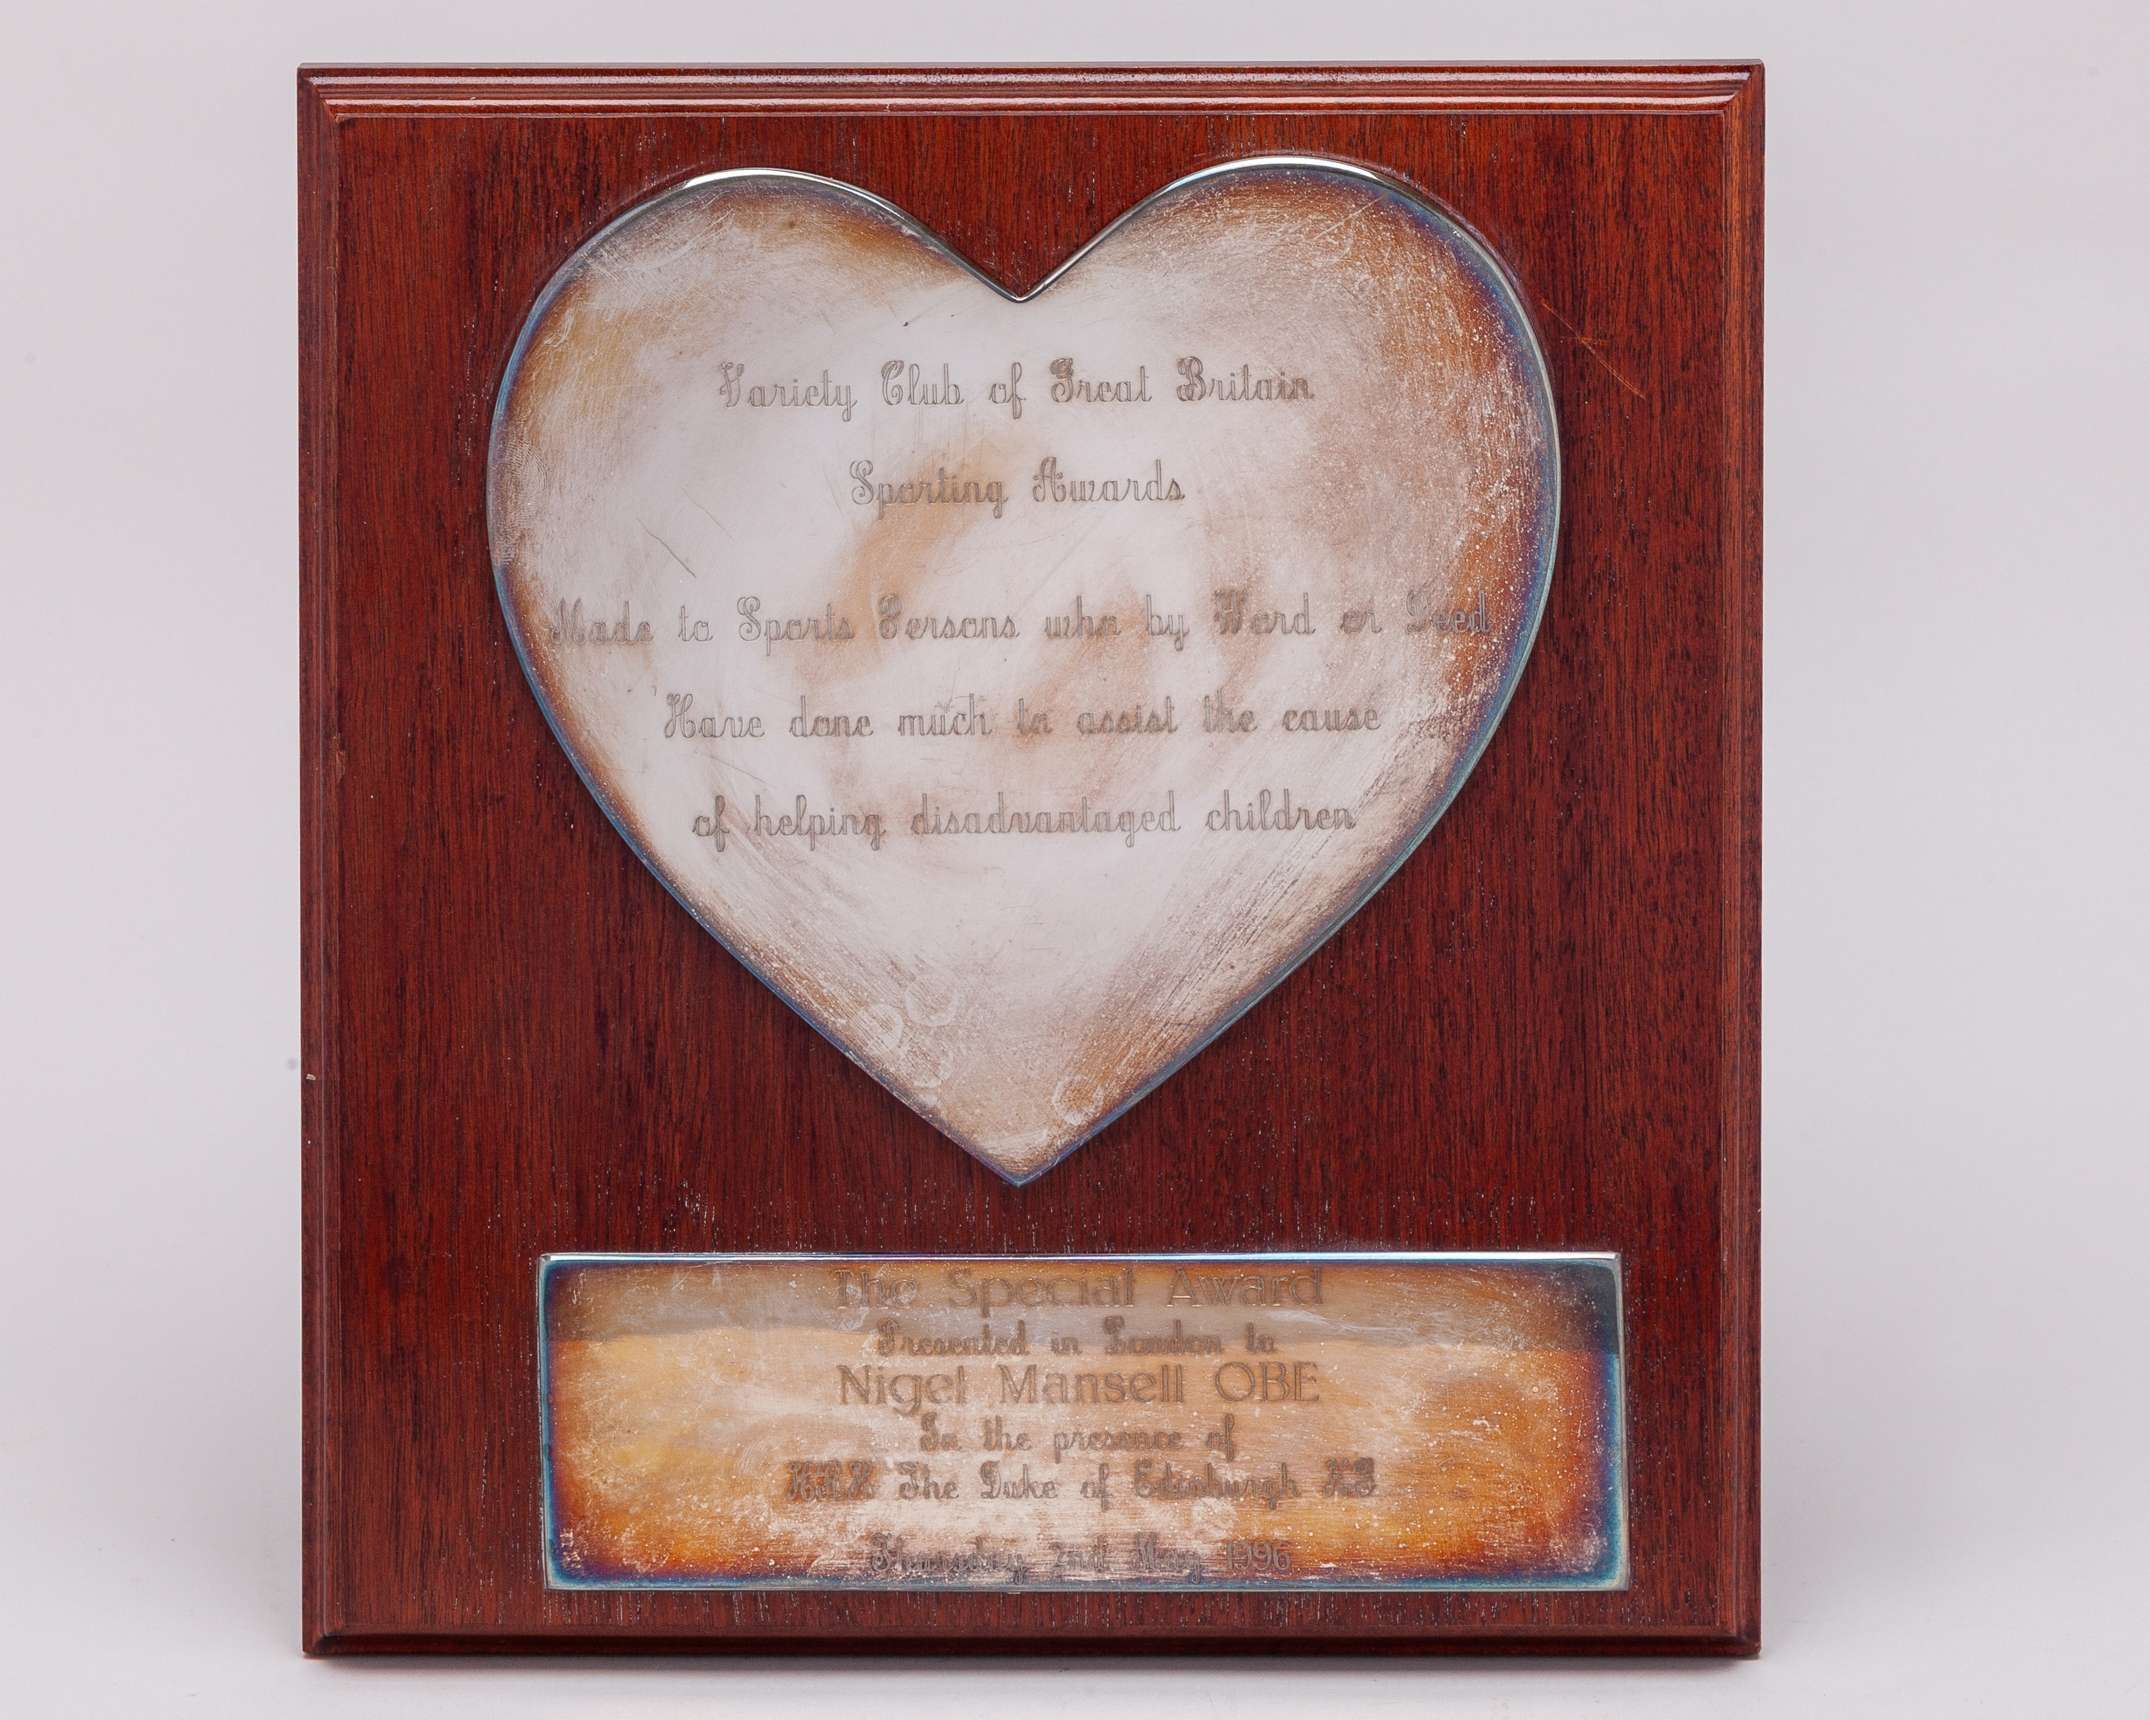 Variety Club of Great Britain
Sporting Awards
Made to Sports Persons who by Word or Deed
Have done much to assist the cause
of helping disadvantaged children
The Special Award
Presented in London to
Nigel Mansell OBE
In the presence of
HRH The Duke of Edinburgh KG
Thursday 2nd May 1996